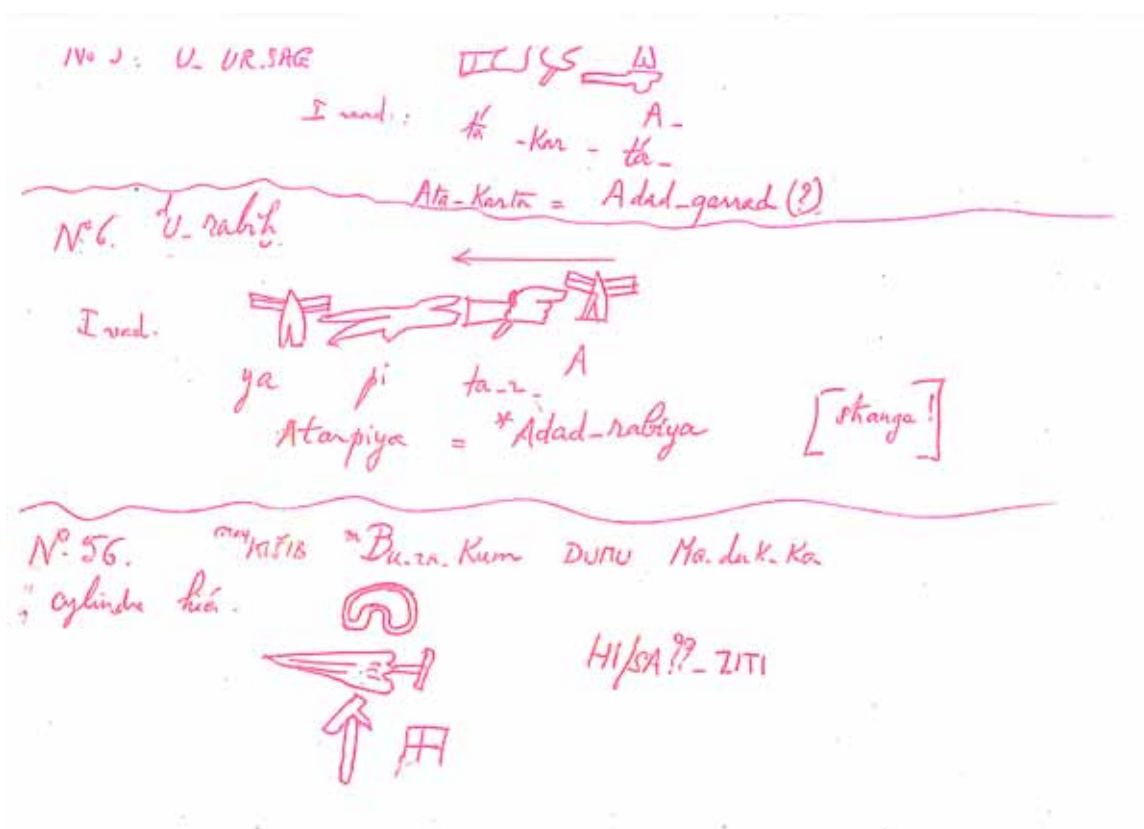 U_ UR.SAG
A_
tá -Kar - tá_
Ata-Karta = Adad_garrad (?)
N° 6. dU_ rabiḫ
A
ya pi ta_r_
Atarpiya = *Adad_rabiya [strange!]
N° 56. KIŠIB mBu.ra.Kum DUMU Ma.duk.Ka
cylindre hié.
HI/SA??_ZITI